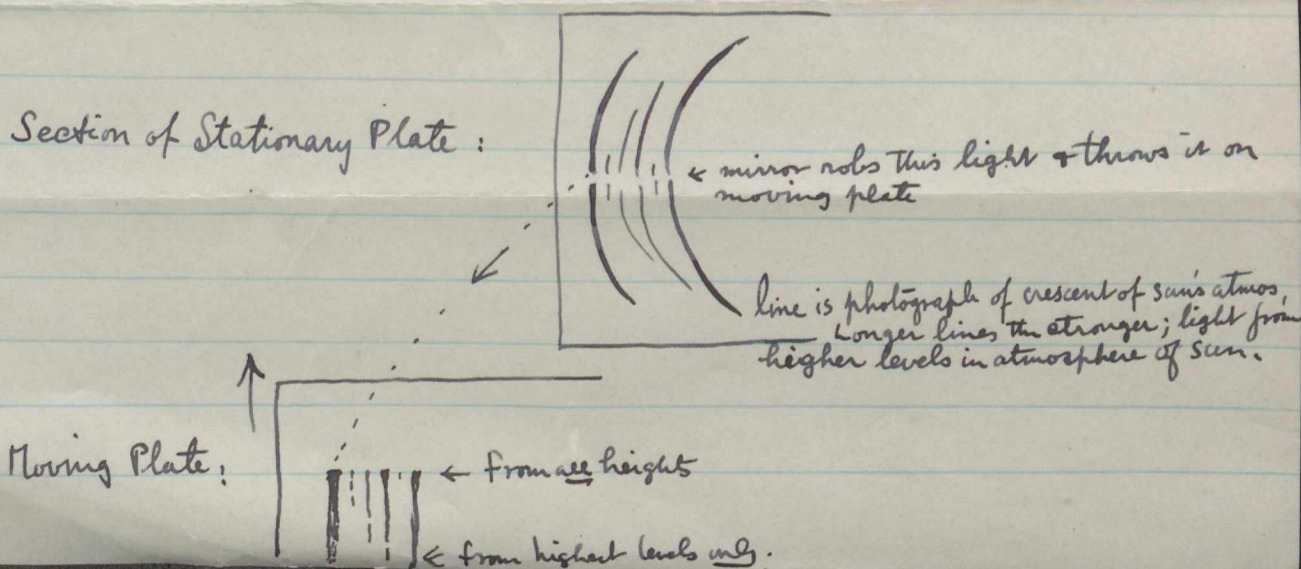 Section of Stationary Plate :
← mirror robs this light & throws it on
moving plate
line is photograph of crescent of sun's atmos,
Longer lines the stronger; light from
higher levels in atmosphere of sun.
Moving Plate :
← From all heights
← from highest levels only.